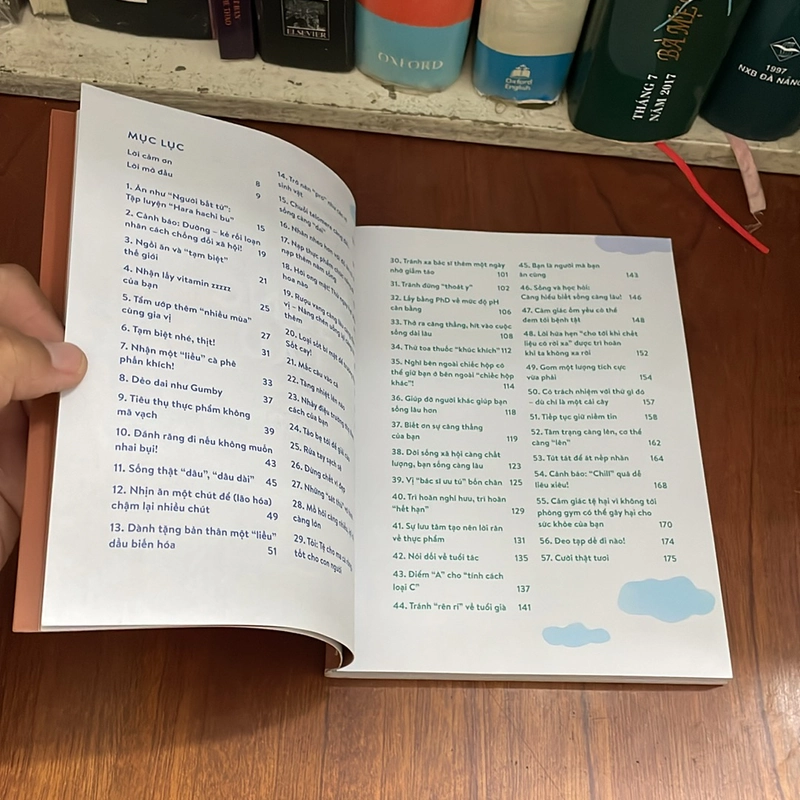 ELSEVIER
OXFORD
Oxford
English
THÁNG 7
NĂM 2017
BÀ MẸ
1997
NXB ĐÀ NẴNG
MỤC LỤC
Lời cảm ơn 8
Lời mở đầu 9
1. Ăn như “Người bất tử”:
Tập luyện “Hara hachi bu” 15
2. Cảnh báo: Đường – kẻ rối loạn
nhân cách chống đối xã hội! 19
3. Ngồi ăn và “tạm biệt”
thế giới 21
4. Nhận lấy vitamin zzzzz
của bạn 25
5. Tẩm ướp thêm “nhiều mùa”
cùng gia vị 27
6. Tạm biệt nhé, thịt! 31
7. Nhận một “liều” cà phê
phấn khích! 33
8. Dẻo dai như Gumby 37
9. Tiêu thụ thực phẩm không
mã vạch 39
10. Đánh răng đi nếu không muốn
nhai bụi! 43
11. Sống thật “dâu”, “dâu dài” 45
12. Nhịn ăn một chút để (lão hóa)
chậm lại nhiều chút 49
13. Dành tặng bản thân một “liều”
dầu biến hóa 51
14. Trở nên “pro”
sinh vật
15. Chuỗi telomere càng
sống càng
16. Nhăn nheo hơn với
17. Nạp thực phẩm
nạp thêm năm sống
18. Hơi ong mật:
hoa nào
19. Rượu vang càng lâu
vị – Nâng chén
thêm
20. Loại sốt bí mật để
Sốt cay!
21. Mắc câu vào cá
22. Tăng nhiệt lên nào
23. Nhảy điệu trường thọ
cách của bạn
24. Táo bạ tới để giải
25. Rửa tay sạch sẽ
26. Dừng chết vì đẹp
27. Những “sát thủ”
28. Mồ hôi càng nhiều
càng lớn
29. Tỏi: Tệ cho ma cà rồng,
tốt cho con người
30. Tránh xa bác sĩ thêm một ngày
nhờ giấm táo 101
31. Tránh đứng “thoát y” 102
32. Lấy bằng PhD về mức độ pH
cân bằng 106
33. Thở ra căng thẳng, hít vào cuộc
sống dài lâu 108
34. Thử toa thuốc “khúc khích” 112
35. Nghỉ bên ngoài chiếc hộp có
thể giữ bạn ở bên ngoài “chiếc hộp
khác”! 114
36. Giúp đỡ người khác giúp bạn
sống lâu hơn 118
37. Biết ơn sự căng thẳng
của bạn 119
38. Đời sống xã hội càng chất
lượng, bạn sống càng lâu 123
39. Vị “bác sĩ tu tú” bốn chân 125
40. Trì hoãn nghỉ hưu, trì hoãn
“hết hạn” 129
41. Sự lưu tâm tạo nên lối rân
về thực phẩm 131
42. Nói dối về tuổi tác 135
43. Điểm “A” cho “tính cách
loại C” 137
44. Tránh “rên rỉ” về tuổi già 141
45. Bạn là người mà bạn
ăn cùng 143
46. Sống và học hỏi:
Càng hiểu biết sống càng lâu! 146
47. Cảm giác ốm yếu có thể
đem tới bệnh tật 148
48. Lời hứa hẹn “cho tới khi chết
liệu có rời xa” được trì hoãn
khi ta không xa rời 152
49. Gom một lượng tích cực
vừa phải 154
50. Có trách nhiệm với thứ gì đó
– dù chỉ là một cái cây 157
51. Tiếp tục giữ niềm tin 158
52. Tâm trạng càng lên, cơ thể
càng “lên” 162
53. Tút tát để át nếp nhăn 164
54. Cảnh báo: “Chill” quá dễ
liêu xiêu! 168
55. Cảm giác tệ hại vì không tới
phòng gym có thể gây hại cho
sức khỏe của bạn 170
56. Deo tạp dề đi nào! 174
57. Cười thật tươi 175